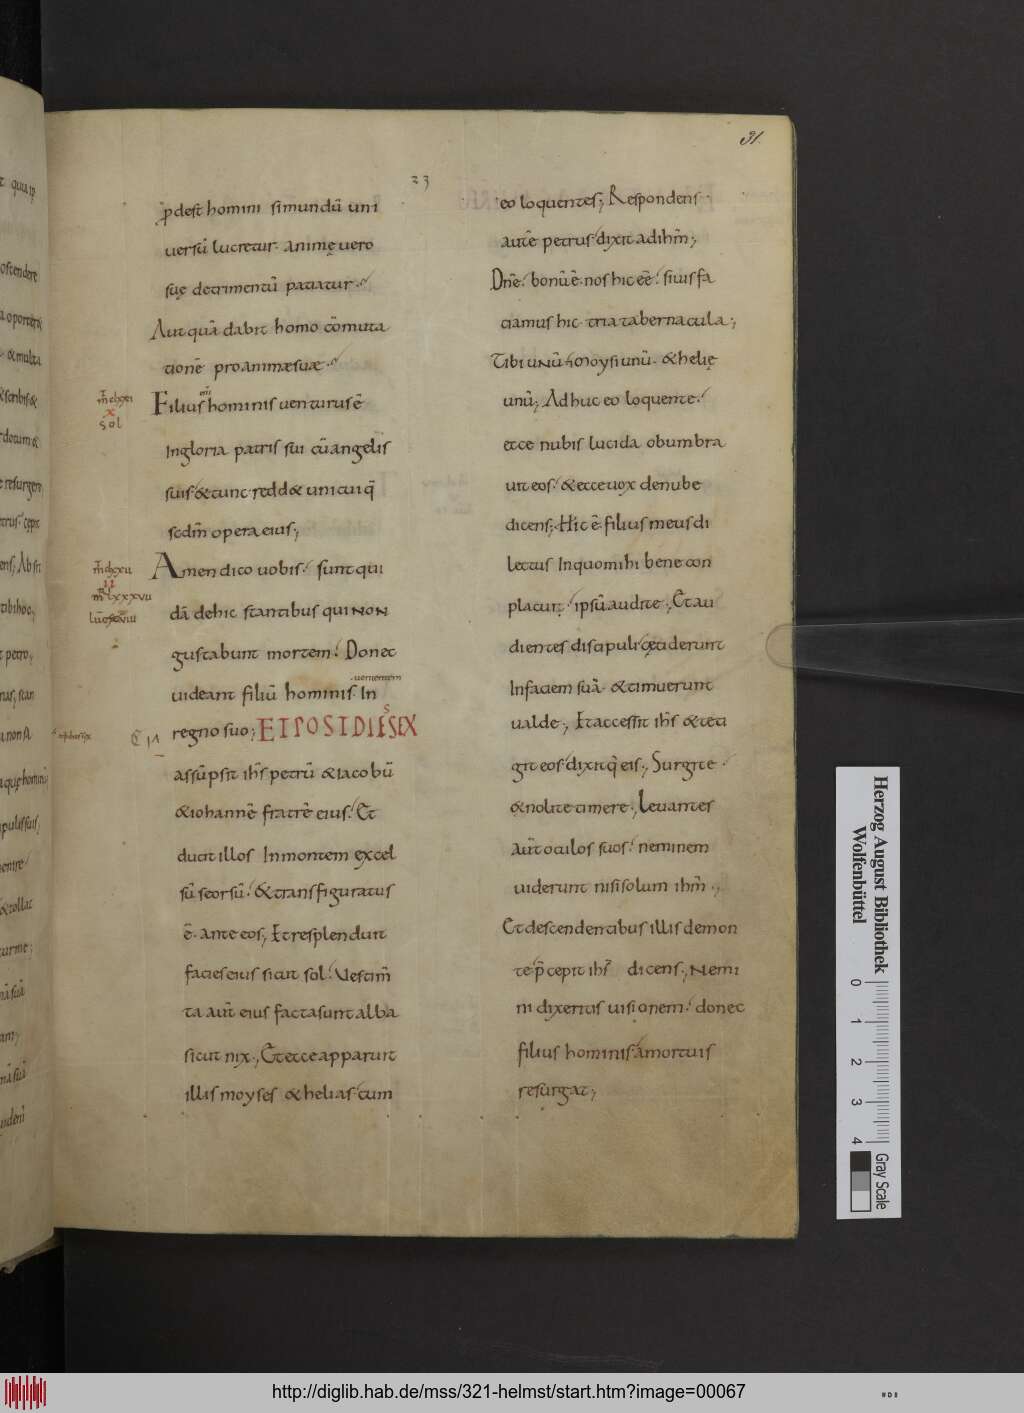 31.
23
p̄dest homini si mundū uni
uersū lucretur· animę uero
suę detrimentū patiatur·
Aut quā dabit homo cōmuta
tionē pro anima suæ·
Filius enī hominis uenturus ē
In gloria patris sui cū angelis
suis· & tunc redd& unicuiq̄
scdm̄ opera eius;
Amen dico uobis· sunt qui
dā de hic stantibus qui NON
gustabunt mortem· Donec
uideant filiū hominis· uenientem In
regno suo; ET POST DIES SEX
assūpsit ih̄s petrū & iacobū
& iohannē fratrē eius· Et
ducit illos In montem excel
sū seorsū· & transfiguratus
ē· ante eos; Et resplenduit
facies eius sicut sol· Vestim̄
ta aut̄ eius facta sunt alba
sicut nix·, Et ecce apparuit
illis moyses & helias cum
eo loquentes; Respondens
autē petrus dixit ad ih̄m;
Dn̄e· bonū ē· nos hic eē· si uis fa
ciamus hic· tria tabernacula;
Tibi unū & Moysi unū· & helię
unū; Adhuc eo loquente·
ecce nubis lucida obumbra
uit eos· & ecce uox de nube
dicens; Hic ē· filius meus di
lectus In quo mihi bene con
placuit· ipsū audite; Et au
dientes discipuli ceciderunt
In faciem suā· & timuerunt
ualde; Et accessit ih̄s & teti
git eos· dixitq̄ eis; Surgite·
& nolite timere; Leuantes
aut̄ oculos suos· neminem
uiderunt nisi solum ih̄m·,
Et descendentibus illis de mon
te p̄cepit ih̄s dicens; Nemi
ni dixeritis uisionem· donec
filius hominis a mortuis
resurgat;
Herzog August Bibliothek
Wolfenbüttel
0 1 2 3 4
Gray Scale
http://diglib.hab.de/mss/321-helmst/start.htm?image=00067